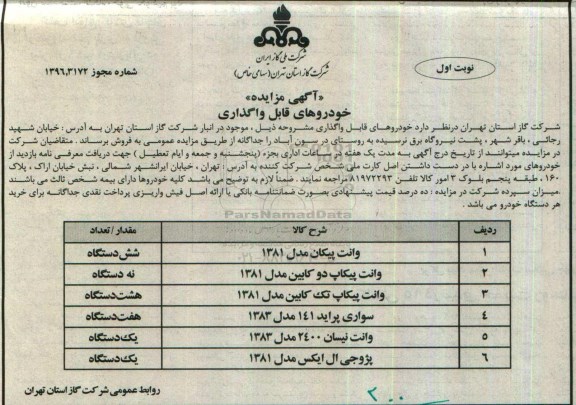 شرکت ملی گاز ایران
شرکت گاز استان تهران (سهامی خاص)
نوبت اول
شماره مجوز ۱۳۹۶،۳۱۷۲
«آگهی مزایده»
خودروهای قابل واگذاری
شرکت گاز استان تهران درنظر دارد خودروهای قابل واگذاری مشروحه ذیل ، موجود در انبار شرکت گاز استان تهران به آدرس : خیابان شهید
رجائی ، باقر شهر ، پشت نیروگاه برق نرسیده به روستای درسون آباد را جداگانه از طریق مزایده عمومی به فروش برساند . متقاضیان شرکت
در مزایده میتوانند از تاریخ درج آگهی به مدت یک هفته در ساعات اداری بجزء (پنجشنبه و جمعه و ایام تعطیل ) جهت دریافت معرفی نامه بازدید از
خودروهای مورد اشاره با در دست داشتن اصل کارت ملی شخص شرکت کننده به آدرس : تهران ، خیابان ایرانشهر شمالی ، نبش خیابان اراک ، پلاک
۱۶۰ ، طبقه پنجم بلوک ۳ امور کالا تلفن ۸۱۹۷۲۲۹۳ مراجعه نمایند . ضمنا لازم به توضیح می باشد کلیه خودروها دارای بیمه شخص ثالث می باشند
.میزان سپرده شرکت در مزایده : ده درصد قیمت پیشنهادی بصورت ضمانتنامه بانکی یا ارائه اصل فیش واریزی پرداخت نقدی جداگانه برای خرید
هر دستگاه خودرو می باشد .
ParsNamadData
ردیف شرح کالا مقدار/تعداد
۱ وانت پیکان مدل ۱۳۸۱ شش دستگاه
۲ وانت پیکاپ دو کابین مدل ۱۳۸۱ نه دستگاه
۳ وانت پیکاپ تک کابین مدل ۱۳۸۱ هشت دستگاه
۴ سواری پراید ۱۴۱ مدل ۱۳۸۳ هفت دستگاه
۵ وانت نیسان ۲۴۰۰ مدل ۱۳۸۳ یک دستگاه
۶ پژوجی ال ایکس مدل ۱۳۸۱ یک دستگاه
روابط عمومی شرکت گاز استان تهران